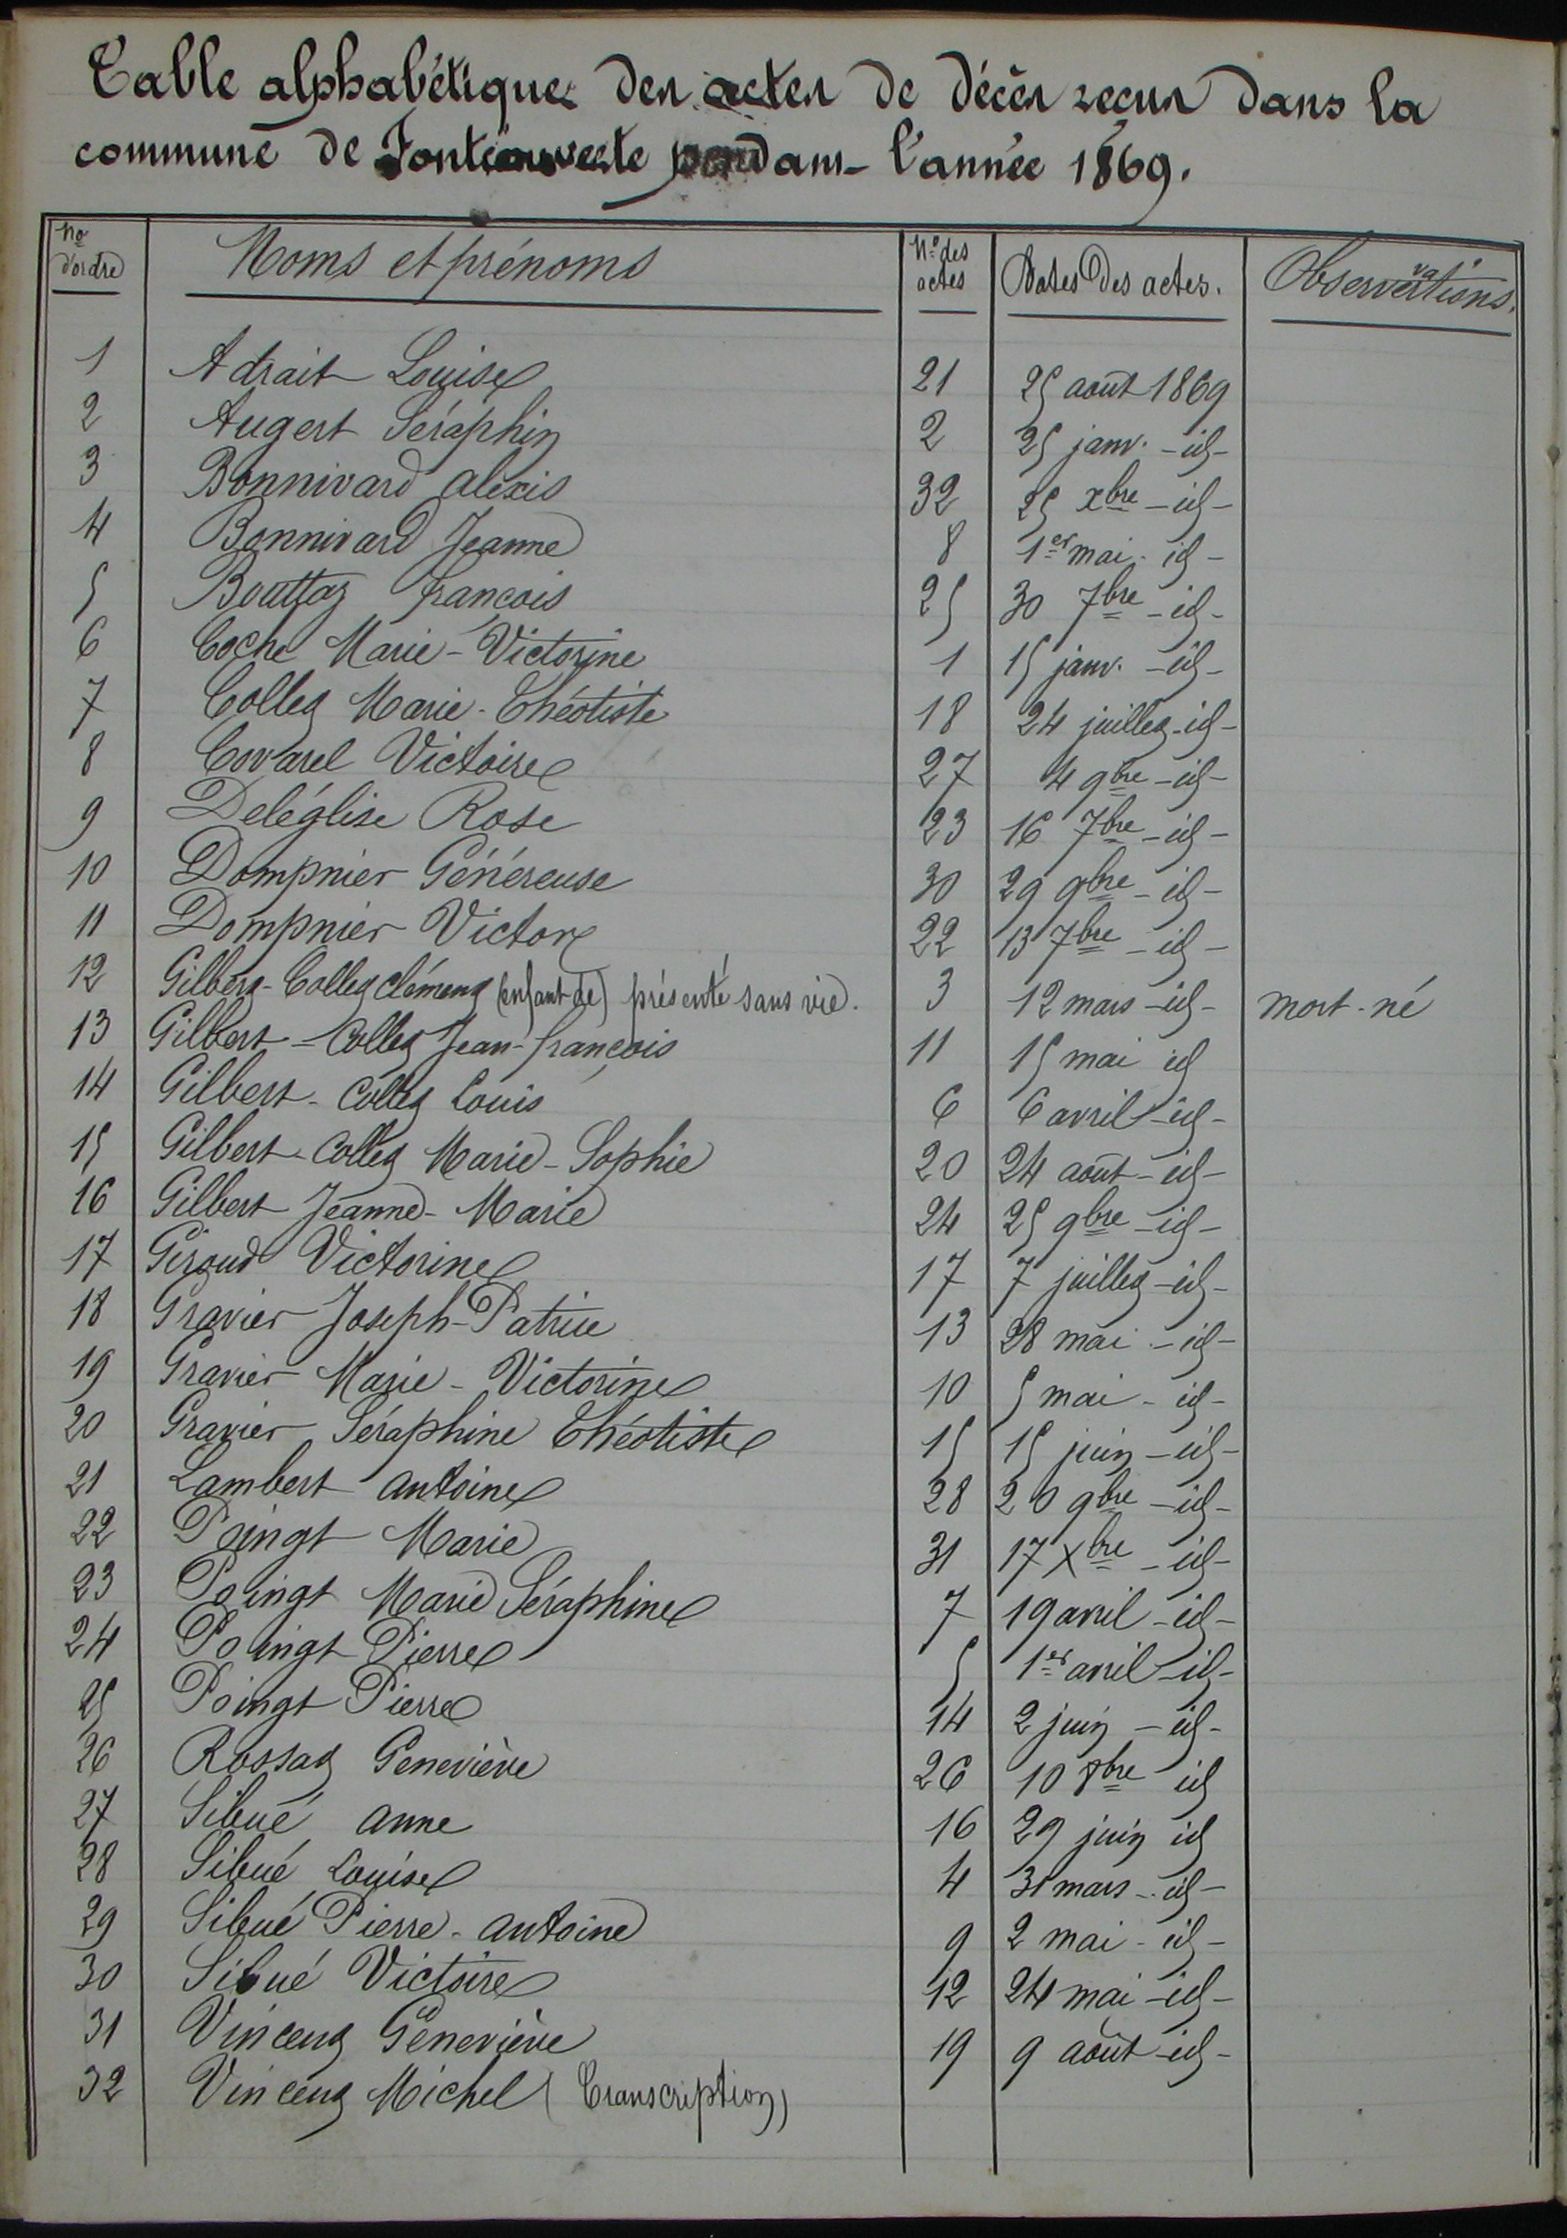 Table alphabétique des actes de décès reçus dans la
commune de Fontcouverte pendant l'année 1869.
No d'ordre Noms et prénoms Nos des actes Dates des actes. Observations.
1 Adrait Louise 21 25 août 1869
2 Augert Séraphin 2 25 janv. -id-
3 Bonnivard Alexis 32 25 xbre -id-
4 Bonnivard Jeanne 8 1er mai - id -
5 Bouttaz François 25 30 7bre -id-
6 Coche Marie-Victorine 1 15 janv. -id-
7 Collet Marie-Théotiste 18 24 juillet -id-
8 Covarel Victoire 27 4 9bre -id-
9 Deléglise Rose 23 16 7bre -id-
10 Dompnier Généreuse 30 29 9bre -id-
11 Dompnier Victor 22 13 7bre -id-
12 Gilbert-Collet Clément (enfant de) présenté sans vie. 3 12 mars -id- mort-né
13 Gilbert-Collet Jean-François 11 15 mai id
14 Gilbert-Collet Louis 6 6 avril -id-
15 Gilbert-Collet Marie-Sophie 20 24 août -id-
16 Gilbert Jeanne-Marie 24 25 9bre -id-
17 Giroud Victorine 17 7 juillet -id-
18 Gravier Joseph-Patrice 13 28 mai -id-
19 Gravier Marie-Victorine 10 5 mai - id-
20 Gravier Séraphine Théotiste 15 15 juin -id-
21 Lambert Antoine 28 20 9bre -id-
22 Poingt Marie 31 17 Xbre -id-
23 Poingt Marie Séraphine 7 19 avril -id-
24 Poingt Pierre 5 1er avril -id-
25 Poingt Pierre 14 2 juin -id-
26 Rossat Geneviève 26 10 8bre id
27 Sibué Anne 16 29 juin id
28 Sibué Louise 4 31 mars -id-
29 Sibué Pierre-Antoine 9 2 mai -id-
30 Sibué Victoire 12 24 mai -id-
31 Vincent Geneviève 19 9 août -id-
32 Vincent Michel (Transcription)